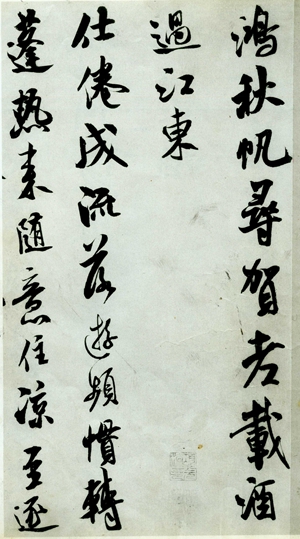 鴻秋帆尋賀老載酒
過江東
仕倦成流落遊頻慣轉
蓬熱來隨意住涼至逐